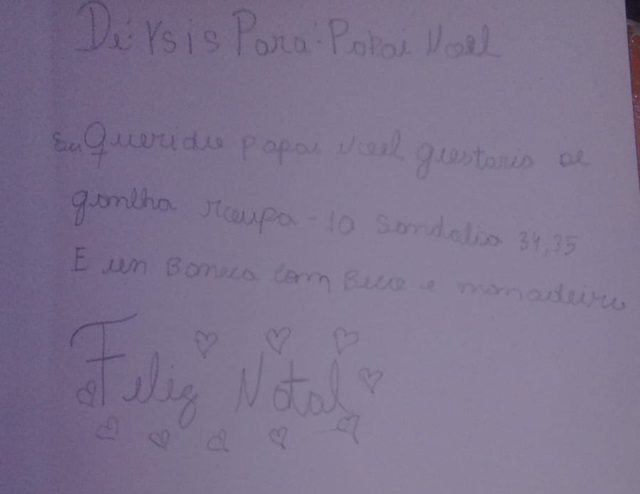 Dè: Ysis Para: Papai Noel
Eu Queridu papai Noel gustaria de
gamlha roupa-10 sandalia 34,35
E um Boneca com Bico e mamadeira
Feliz Natal